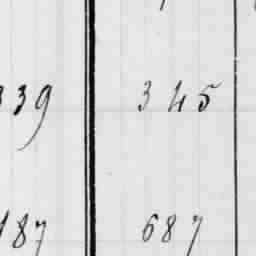 339 345
187 687